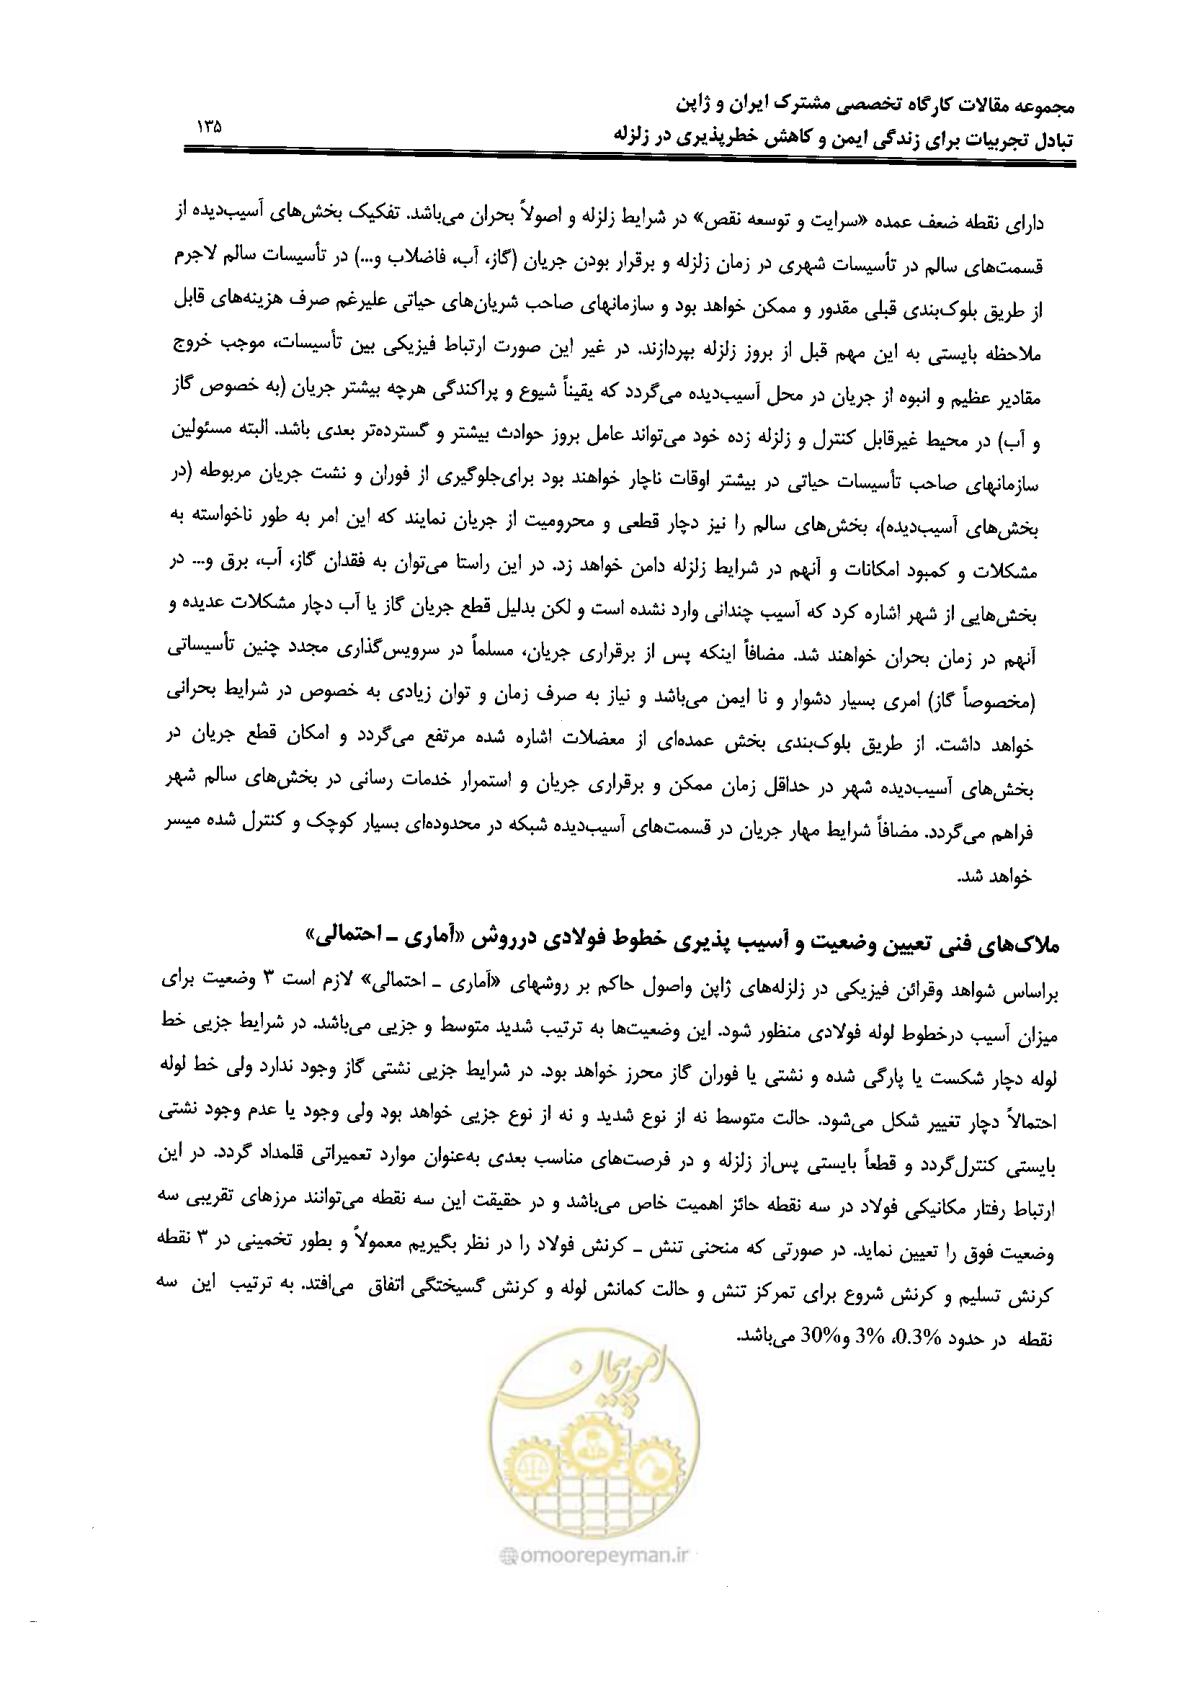 مجموعه مقالات کارگاه تخصصی مشترک ایران و ژاپن
تبادل تجربیات برای زندگی ایمن و کاهش خطرپذیری در زلزله
۱۳۵
دارای نقطه ضعف عمده «سرایت و توسعه نقص» در شرایط زلزله و اصولاً بحران می‌باشد. تفکیک بخش‌های آسیب‌دیده از
قسمت‌های سالم در تأسیسات شهری در زمان زلزله و برقرار بودن جریان (گاز، آب، فاضلاب و...) در تأسیسات سالم لاجرم
از طریق بلوک‌بندی قبلی مقدور و ممکن خواهد بود و سازمانهای صاحب شریان‌های حیاتی علیرغم صرف هزینه‌های قابل
ملاحظه بایستی به این مهم قبل از بروز زلزله بپردازند. در غیر این صورت ارتباط فیزیکی بین تأسیسات، موجب خروج
مقادیر عظیم و انبوه از جریان در محل آسیب‌دیده می‌گردد که یقیناً شیوع و پراکندگی هرچه بیشتر جریان (به خصوص گاز
و آب) در محیط غیرقابل کنترل و زلزله زده خود می‌تواند عامل بروز حوادث بیشتر و گسترده‌تر بعدی باشد. البته مسئولین
سازمانهای صاحب تأسیسات حیاتی در بیشتر اوقات ناچار خواهند بود برای‌جلوگیری از فوران و نشت جریان مربوطه (در
بخش‌های آسیب‌دیده)، بخش‌های سالم را نیز دچار قطعی و محرومیت از جریان نمایند که این امر به طور ناخواسته به
مشکلات و کمبود امکانات و آنهم در شرایط زلزله دامن خواهد زد. در این راستا می‌توان به فقدان گاز، آب، برق و... در
بخش‌هایی از شهر اشاره کرد که آسیب چندانی وارد نشده است و لکن بدلیل قطع جریان گاز یا آب دچار مشکلات عدیده و
آنهم در زمان بحران خواهند شد. مضافاً اینکه پس از برقراری جریان، مسلماً در سرویس‌گذاری مجدد چنین تأسیساتی
(مخصوصاً گاز) امری بسیار دشوار و نا ایمن می‌باشد و نیاز به صرف زمان و توان زیادی به خصوص در شرایط بحرانی
خواهد داشت. از طریق بلوک‌بندی بخش عمده‌ای از معضلات اشاره شده مرتفع می‌گردد و امکان قطع جریان در
بخش‌های آسیب‌دیده شهر در حداقل زمان ممکن و برقراری جریان و استمرار خدمات رسانی در بخش‌های سالم شهر
فراهم می‌گردد. مضافاً شرایط مهار جریان در قسمت‌های آسیب‌دیده شبکه در محدوده‌ای بسیار کوچک و کنترل شده میسر
خواهد شد.
ملاک‌های فنی تعیین وضعیت و آسیب پذیری خطوط فولادی درروش «آماری ـ احتمالی»
براساس شواهد وقرائن فیزیکی در زلزله‌های ژاپن واصول حاکم بر روشهای «آماری ـ احتمالی» لازم است ۳ وضعیت برای
میزان آسیب درخطوط لوله فولادی منظور شود. این وضعیت‌ها به ترتیب شدید متوسط و جزیی می‌باشد. در شرایط جزیی خط
لوله دچار شکست یا پارگی شده و نشتی یا فوران گاز محرز خواهد بود. در شرایط جزیی نشتی گاز وجود ندارد ولی خط لوله
احتمالاً دچار تغییر شکل می‌شود. حالت متوسط نه از نوع شدید و نه از نوع جزیی خواهد بود ولی وجود یا عدم وجود نشتی
بایستی کنترل‌گردد و قطعاً بایستی پس‌از زلزله و در فرصت‌های مناسب بعدی به‌عنوان موارد تعمیراتی قلمداد گردد. در این
ارتباط رفتار مکانیکی فولاد در سه نقطه حائز اهمیت خاص می‌باشد و در حقیقت این سه نقطه می‌توانند مرزهای تقریبی سه
وضعیت فوق را تعیین نماید. در صورتی که منحنی تنش ـ کرنش فولاد را در نظر بگیریم معمولاً و بطور تخمینی در ۳ نقطه
کرنش تسلیم و کرنش شروع برای تمرکز تنش و حالت کمانش لوله و کرنش گسیختگی اتفاق می‌افتد. به ترتیب این سه
نقطه در حدود 0.3%، 3% و30% می‌باشد.
امور پیمان
@omoorepeyman.ir